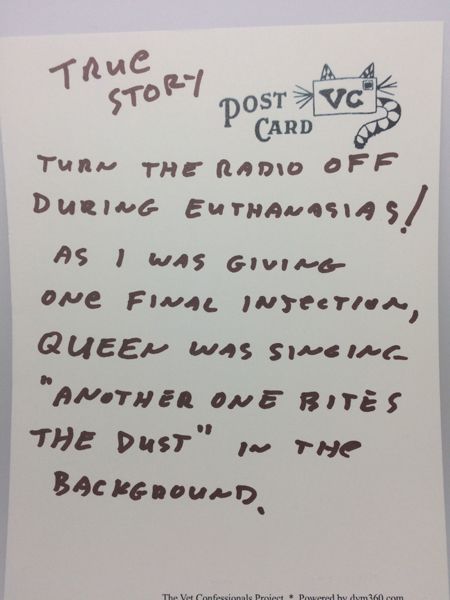 TRUE
STORY
POST
CARD
VC
TURN THE RADIO OFF
DURING EUTHANASIAS!
AS I WAS GIVING
ONE FINAL INJECTION,
QUEEN WAS SINGING
"ANOTHER ONE BITES
THE DUST" IN THE
BACKGROUND.
The Vet Confessionals Project * Powered by dvm360.com